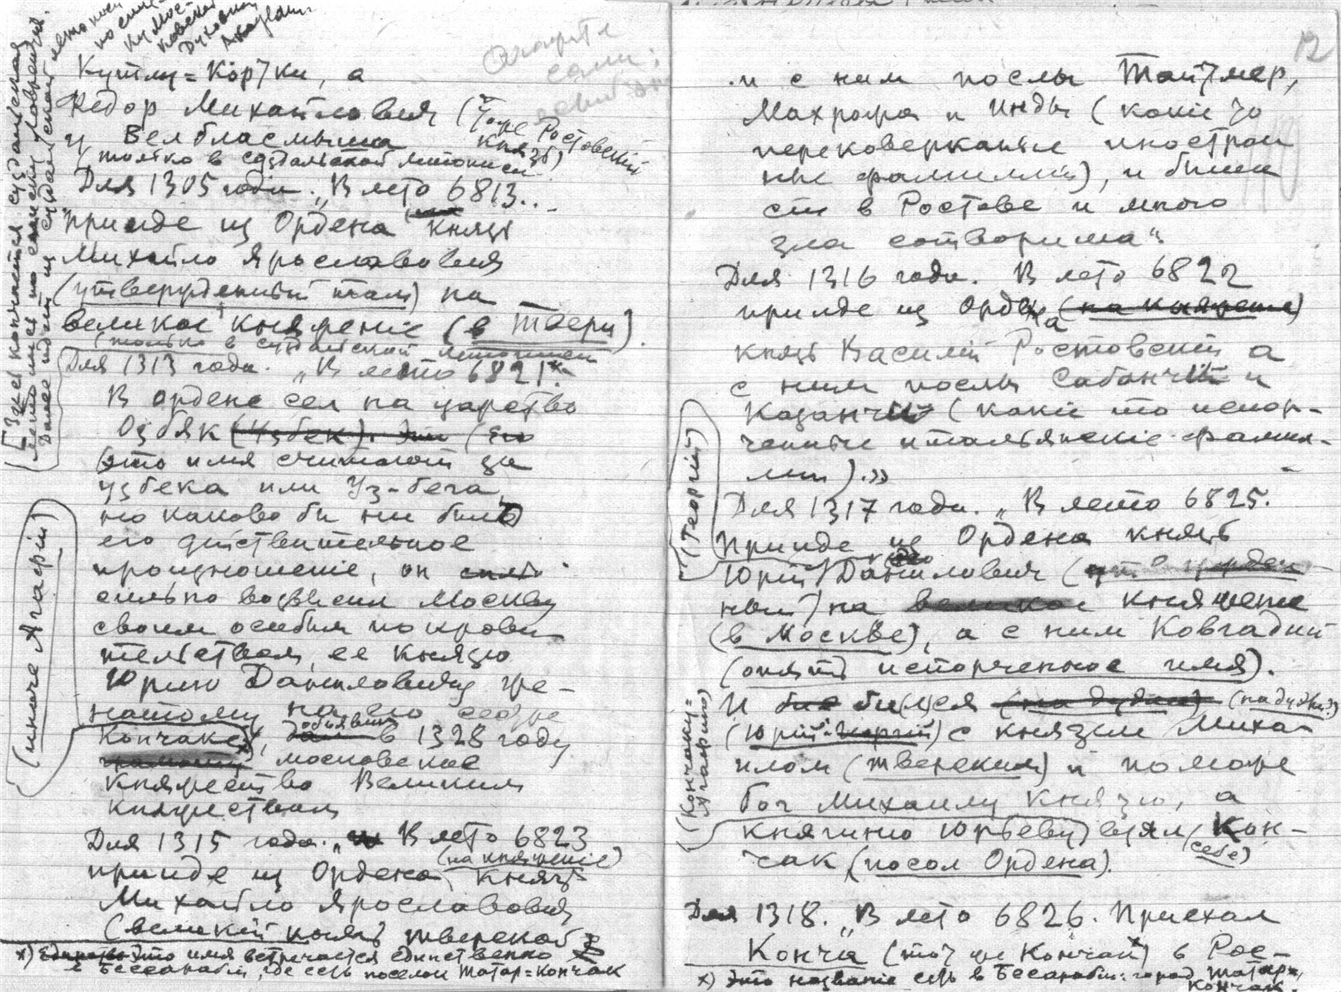 по спис
ку Мос-
ковской
Духовной
Академии
Здесь кончается суздальская
Кутлу=Кортки, а
Федор Михайлович (тоже Ростовский
князь)
у Велбласмыша
(только в суздальской летописи
Для 1305 года. „В лето 6813...
прииде из Ордена князь
Михайло Ярославович
(утвержденный там) на
великое княжение (в Твери).
(только в суздальской летописи
Для 1313 года. „В лето 6821.
В ордене сел на царство
Озбяк (Узбек). Эти (Его
это имя считают за
узбека или Уз-бега,
но каково би ни било
его действительное
произношение, он
сильно возвысил Москву
своим особым покрови-
тельством ее князю
Юрию Даниловичу же-
натому на его сестре
(иначе Агафии)
Кончаке, объявив в 1328 году
московское
княжество Великим
княжеством
Для 1315 года. „В лето 6823
прииде из Ордена (на княжение) князь
Михайло Ярославович
(великий князь тверской)
х) Это имя встречается единственно
в Бессарабии, где есть поселок Татар=Кончак
12
и с ним послы Тайтмер,
Махрожа и Инды (какие то
перековерканые иностран
ные фамилии), и быша
сии в Ростове и много
зла сотвориша“
Для 1316 года. В лето 6822
прииде из Орды (на княжение)
князь Василий Ростовский а
с ним послы Сабанчий и
Казанчий (какие то испор-
ченные итальянские фами-
лии).»
Для 1317 года. „В лето 6825.
Прииде из Ордена князь
(Георгий)
Юрий Данилович
на великое княжение
(в Москве), а с ним Ковгадий
(опять испорченное имя).
И бися (на дудки) (на дудки?)
(Юрий Георгий) с князем Миха-
илом (тверским) и поможе
бог Михаилу князю, а
(Кончаку=
Агафию)
княгиню Юрьеву взял (себе) Кон-
чак (посол Ордена).
Для 1318. „В лето 6826. Приехал
Конча (тот же Кончак) в Рос-
х) Это название есть в Бессарабии: город Татар=
Кончак.